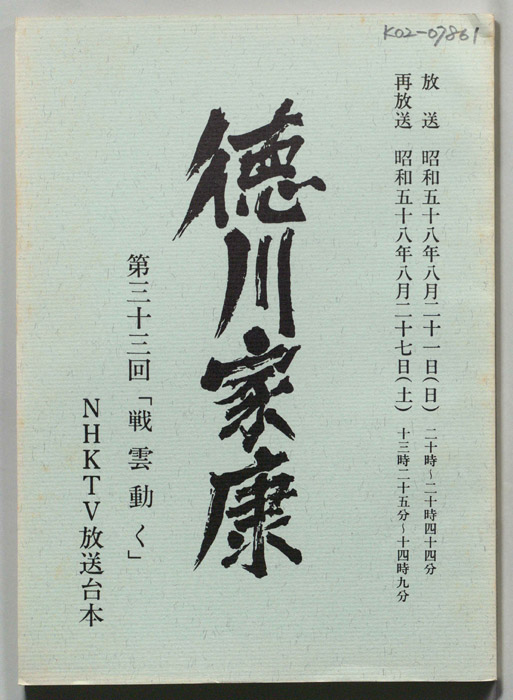 K02-07861
放送　昭和五十八年八月二十一日(日)　二十時〜二十時四十四分
再放送　昭和五十八年八月二十七日(土)　十三時二十五分〜十四時九分
徳川家康
第三十三回「戦雲動く」
NHKTV放送台本